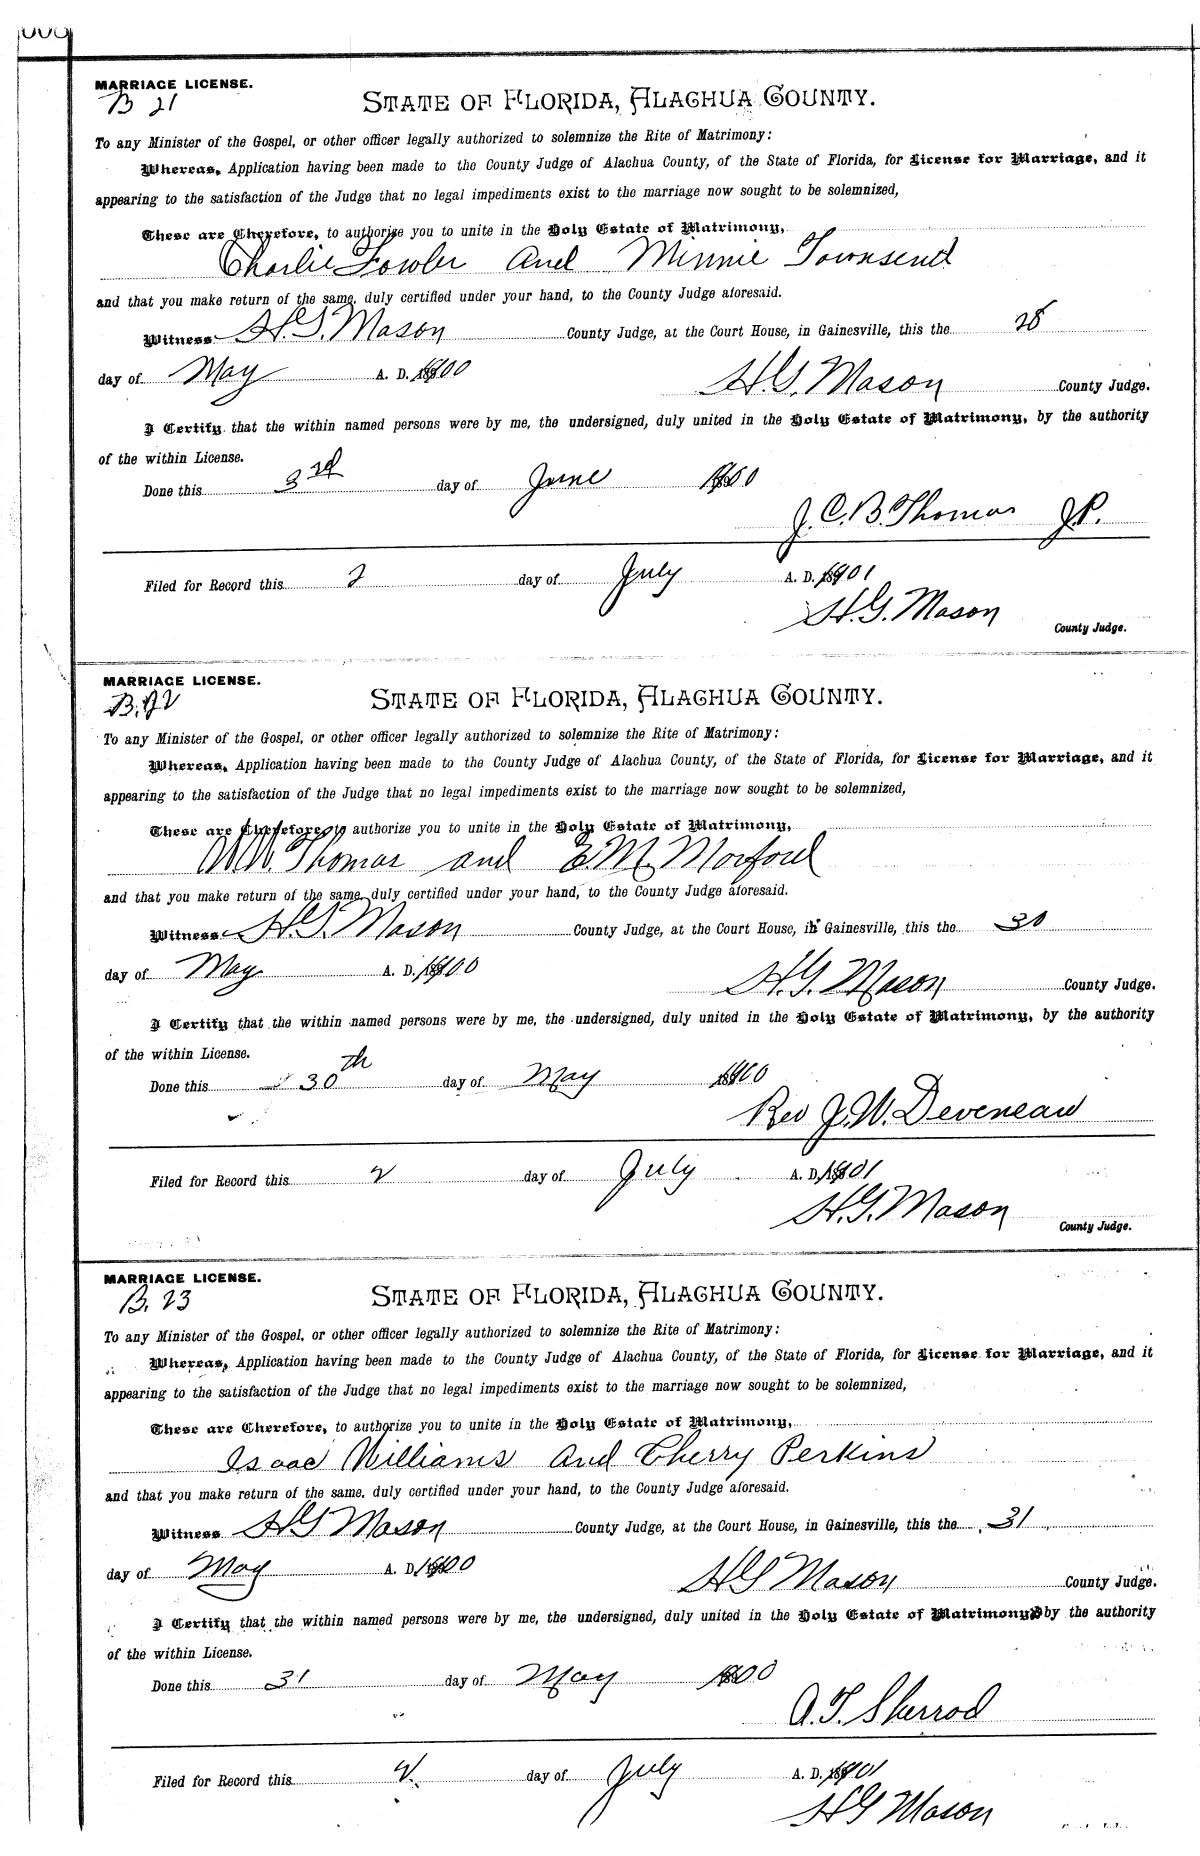 MARRIAGE LICENSE.
B 21
STATE OF FLORIDA, ALACHUA COUNTY.
To any Minister of the Gospel, or other officer legally authorized to solemnize the Rite of Matrimony:
Whereas, Application having been made to the County Judge of Alachua County, of the State of Florida, for License for Marriage, and it
appearing to the satisfaction of the Judge that no legal impediments exist to the marriage now sought to be solemnized,
These are Therefore, to authorize you to unite in the Holy Estate of Matrimony,
Charlie Fowler and Minnie Townsend
and that you make return of the same, duly certified under your hand, to the County Judge aforesaid.
Witness H.G. Mason County Judge, at the Court House, in Gainesville, this the 28
day of May A. D. 1900
H.G. Mason County Judge.
I Certify that the within named persons were by me, the undersigned, duly united in the Holy Estate of Matrimony, by the authority
of the within License.
Done this 3rd day of June 1900
J.C.B. Thomas J.P.
Filed for Record this 2 day of July A. D. 1901
H.G. Mason
County Judge.
MARRIAGE LICENSE.
B. 22
STATE OF FLORIDA, ALACHUA COUNTY.
To any Minister of the Gospel, or other officer legally authorized to solemnize the Rite of Matrimony:
Whereas, Application having been made to the County Judge of Alachua County, of the State of Florida, for License for Marriage, and it
appearing to the satisfaction of the Judge that no legal impediments exist to the marriage now sought to be solemnized,
These are Therefore, to authorize you to unite in the Holy Estate of Matrimony,
W.W. Thomas and E.M. Morford
and that you make return of the same, duly certified under your hand, to the County Judge aforesaid.
Witness H.G. Mason County Judge, at the Court House, in Gainesville, this the 30
day of May A. D. 1900
H.G. Mason County Judge.
I Certify that the within named persons were by me, the undersigned, duly united in the Holy Estate of Matrimony, by the authority
of the within License.
Done this 30th day of May 1900
Rev J.W. Deveneau
Filed for Record this 2 day of July A. D. 1901
H.G. Mason
County Judge.
MARRIAGE LICENSE.
B. 23
STATE OF FLORIDA, ALACHUA COUNTY.
To any Minister of the Gospel, or other officer legally authorized to solemnize the Rite of Matrimony:
Whereas, Application having been made to the County Judge of Alachua County, of the State of Florida, for License for Marriage, and it
appearing to the satisfaction of the Judge that no legal impediments exist to the marriage now sought to be solemnized,
These are Therefore, to authorize you to unite in the Holy Estate of Matrimony,
Isaac Williams and Cherry Perkins
and that you make return of the same, duly certified under your hand, to the County Judge aforesaid.
Witness H G Mason County Judge, at the Court House, in Gainesville, this the 31
day of May A. D. 1900
H G Mason County Judge.
I Certify that the within named persons were by me, the undersigned, duly united in the Holy Estate of Matrimony, by the authority
of the within License.
Done this 31 day of May 1900
A.T. Sherrod
Filed for Record this 2 day of July A. D. 1901
H G Mason